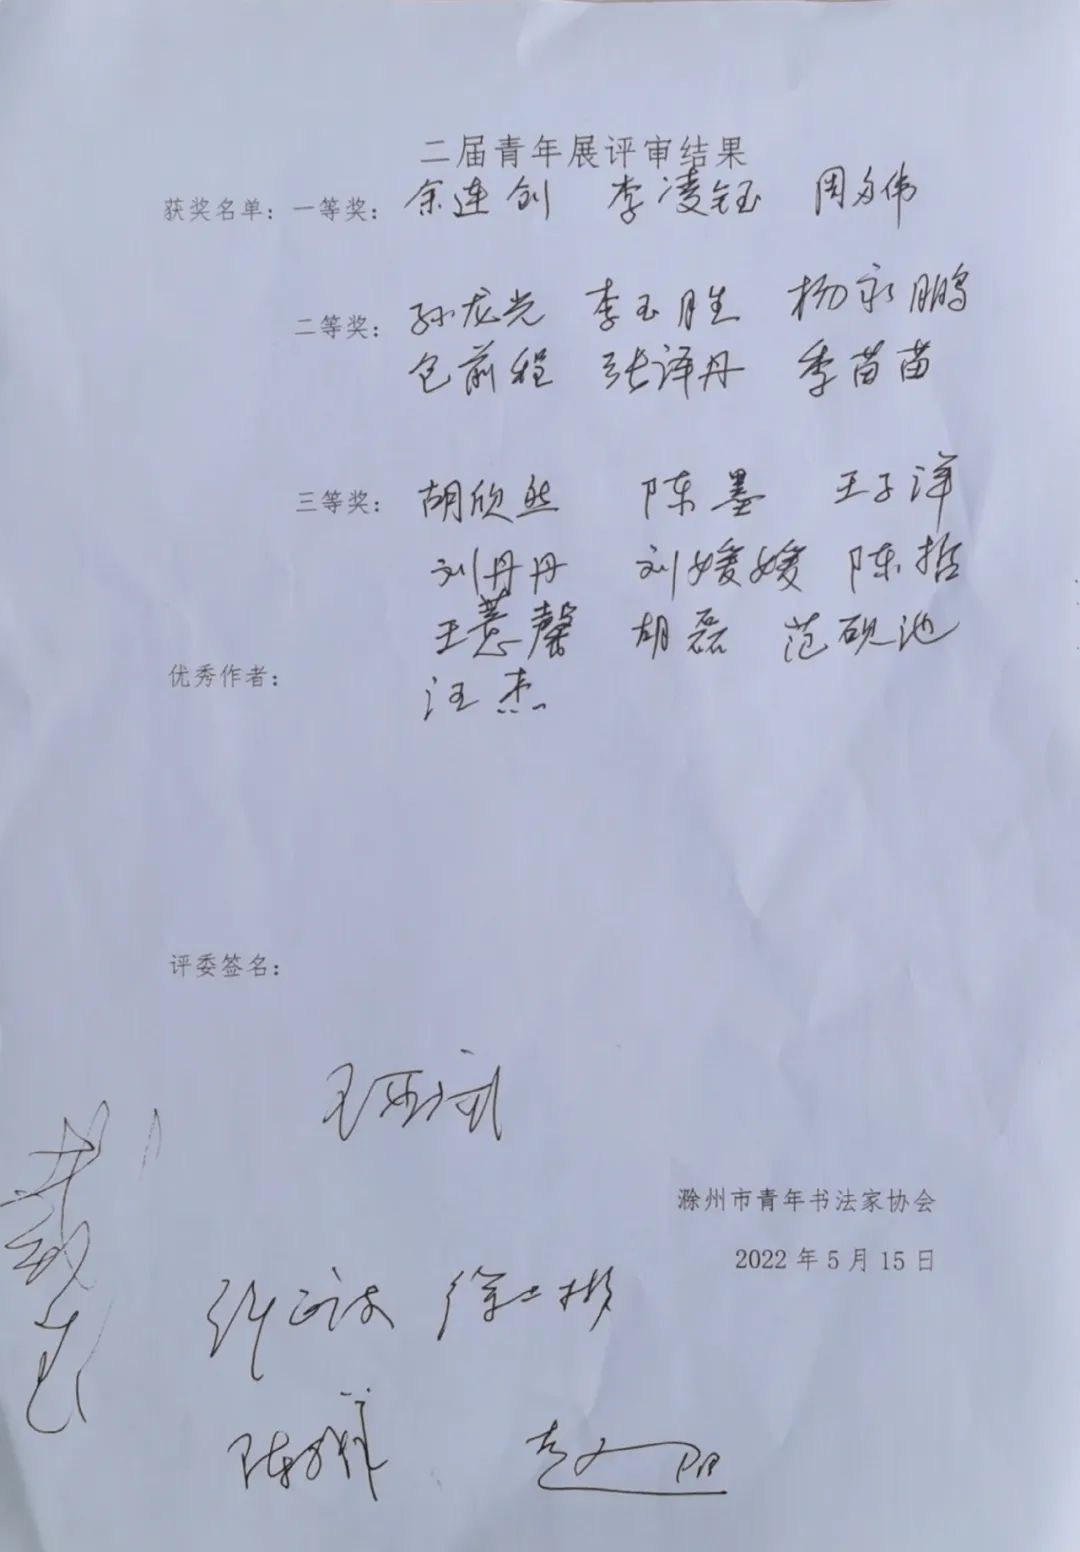 二届青年展评审结果
获奖名单：一等奖：余连创 李凌钰 周为伟
二等奖：孙龙光 李玉胜 杨永鹏
包前程 张译丹 季苗苗
三等奖：胡欣然 陈墨 王子洋
刘丹丹 刘媛媛 陈哲
王薏馨 胡磊 范砚池
优秀作者：汪杰
评委签名：
滁州市青年书法家协会
2022年5月15日
赵阳